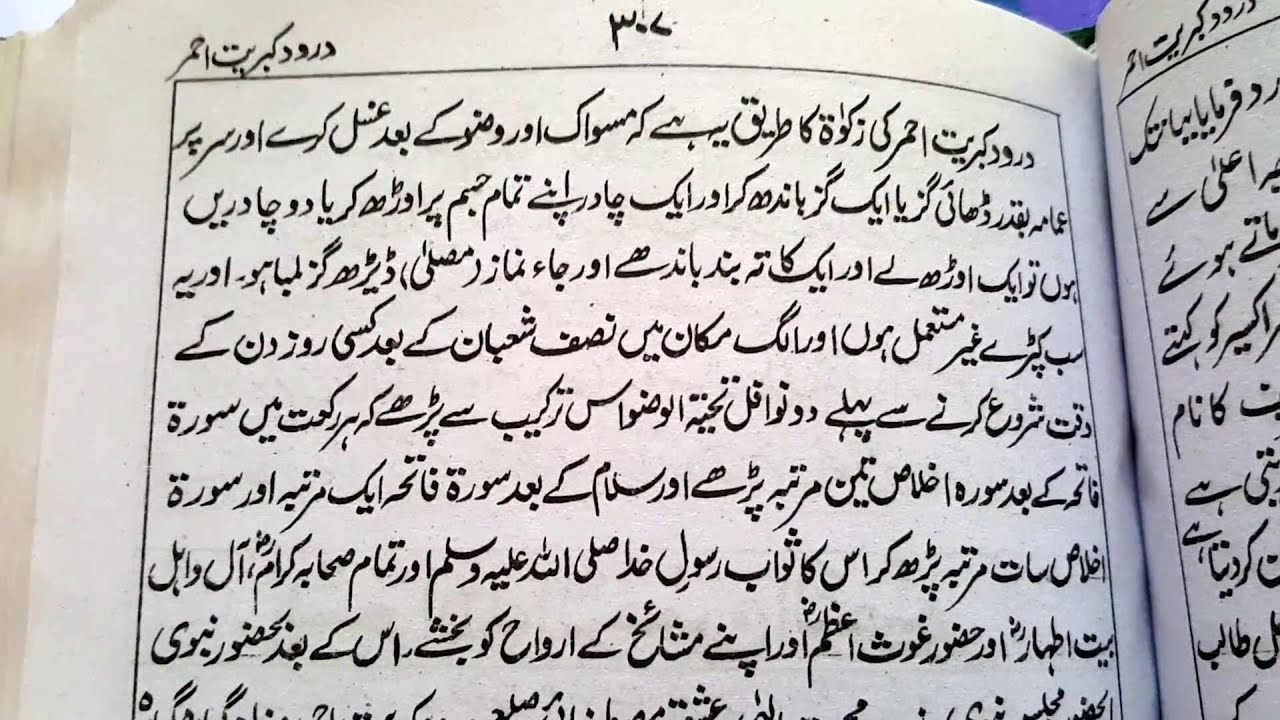 ۳۰۷
درود کبریت احمر
درود کبریت احمر کی زکوٰۃ کا طریق یہ ہے کہ مسواک اور وضو کے بعد غسل کرے اور سر پر
عمامہ بقدر ڈھائی گز یا ایک گز باندھ کر اور ایک چادر اپنے تمام جسم پر اوڑھ کر یا دو چادریں
ہوں تو ایک اوڑھ لے اور ایک کا تہ بند باندھے اور جاء نماز (مصلیٰ) ڈیڑھ گز لمبا ہو۔ اور یہ
سب کپڑے غیر مستعمل ہوں اور الگ مکان میں نصف شعبان کے بعد کسی روز دن کے
وقت شروع کرنے سے پہلے دو نوافل تحیتہ الوضو اس ترکیب سے پڑھے کہ ہر رکوت میں سورۃ
فاتحہ کے بعد سورہ اخلاص تین مرتبہ پڑھے اور سلام کے بعد سورۃ فاتحہ ایک مرتبہ اور سورۃ
اخلاص سات مرتبہ پڑھ کر اس کا ثواب رسولِ خدا صلی اللہ علیہ وسلم اور تمام صحابہ کرامؓ، آل و اہل
بیت اطہارؓ اور حضور غوث اعظمؓ اور اپنے مشائخ کے ارواح کو بخشے۔ اس کے بعد بحضور نبوی
درود کبریت احمر
رد فرمایا یہانتک
اعلیٰ نے
ماتے ہوئے
اکسیر کو کہتے
کا نام
ہے
ت کر دیتا ہے
طالب
کے